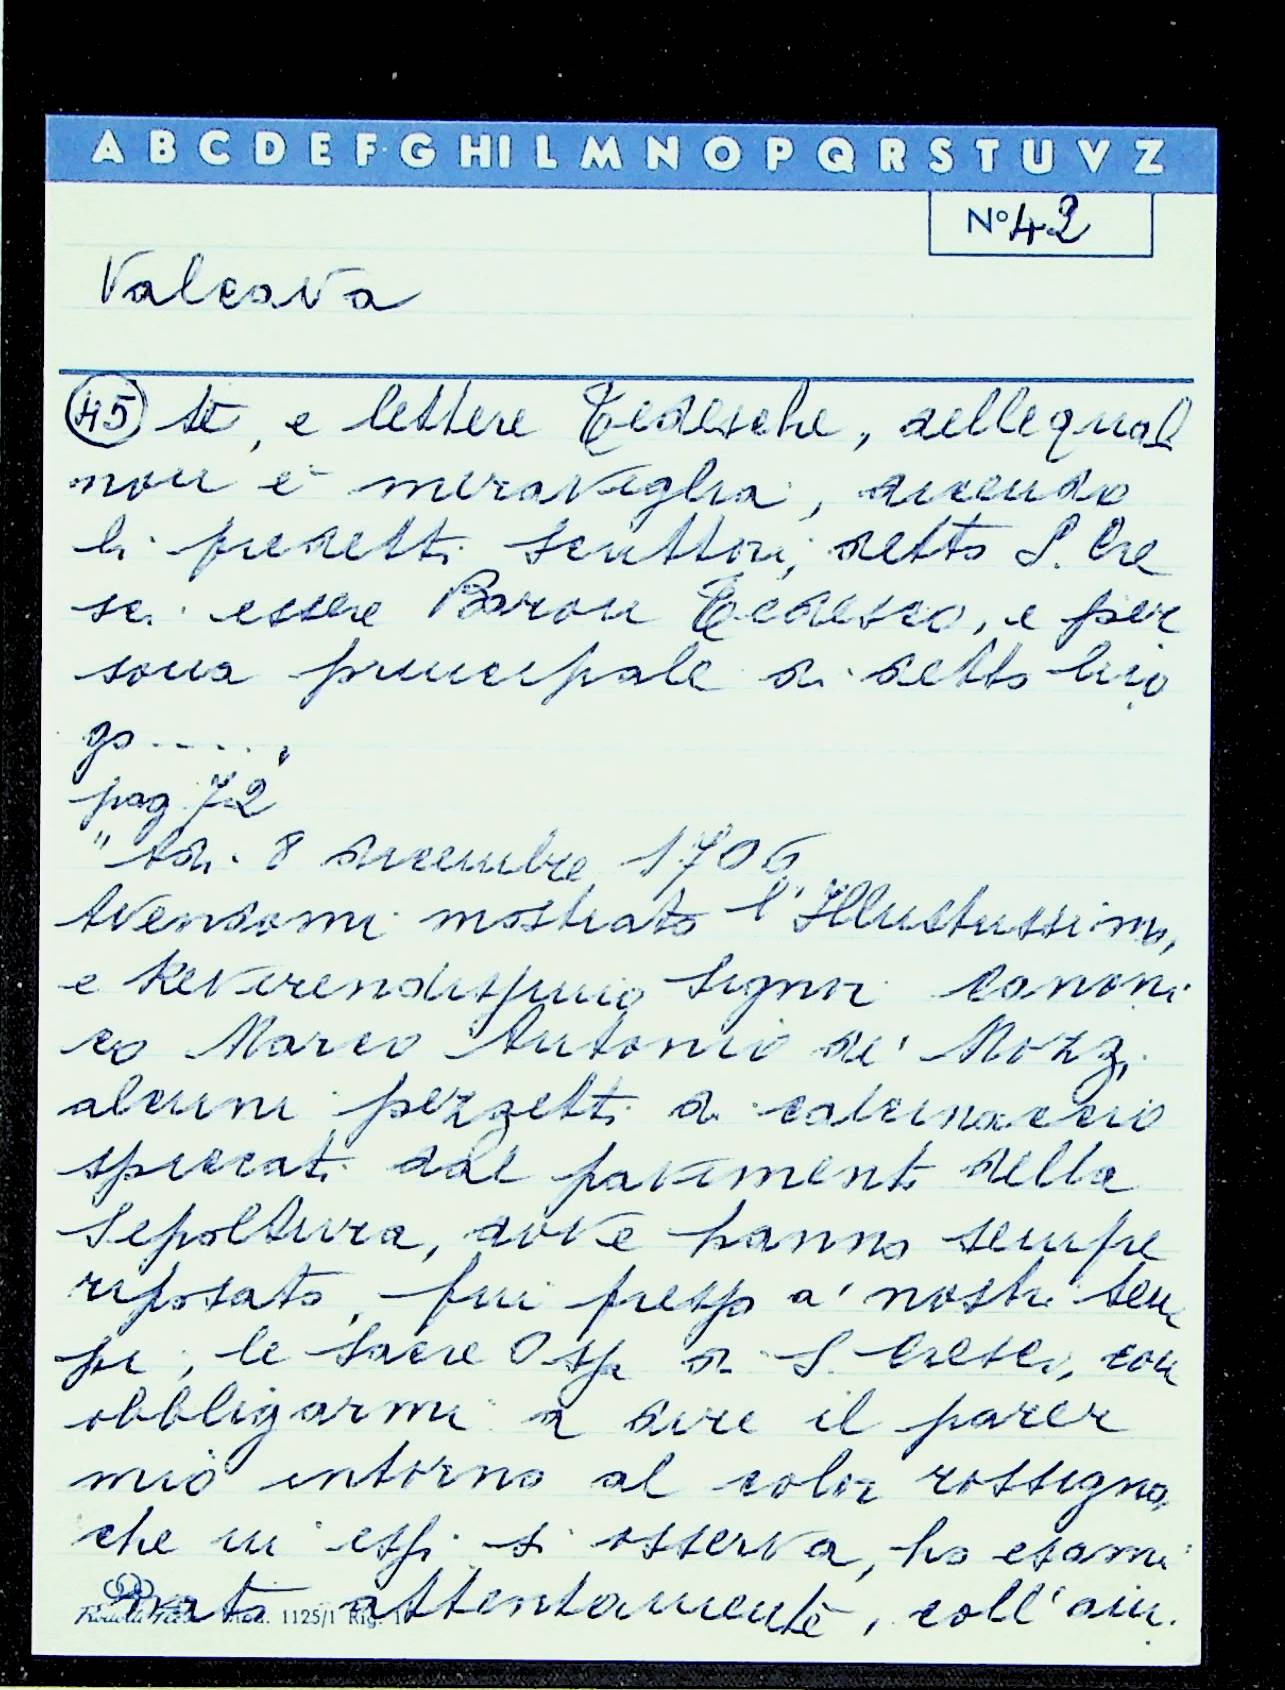 A B C D E F G H I L M N O P Q R S T U V Z
N° 42
Valcava
45 te, e lettere Tedesche, delle qual
non è meraviglia, dicendo
li predetti scrittori, detto S. Cre
sci essere Baron Tedesco, e per
sona principale di detto luo
go.....,
pag. 72
"Adi. 8 dicembre 1706
Avendomi mostrato l'Illustrissimo,
e Reverendissimo Signor Canoni
co Marco Antonio de' Mozzi,
alcuni pezzetti di calcinaccio
spiccati dal pavimento della
Sepoltura, dove hanno sempre
riposato, fui presso a' nostri tem
pi, le sacre Ossa di S. Cresci, con
obbligarmi a dire il parer
mio intorno al color rossigno,
che in essi si osserva, ho esami
nato attentamente, coll'aiu.
1125/1 Rig.